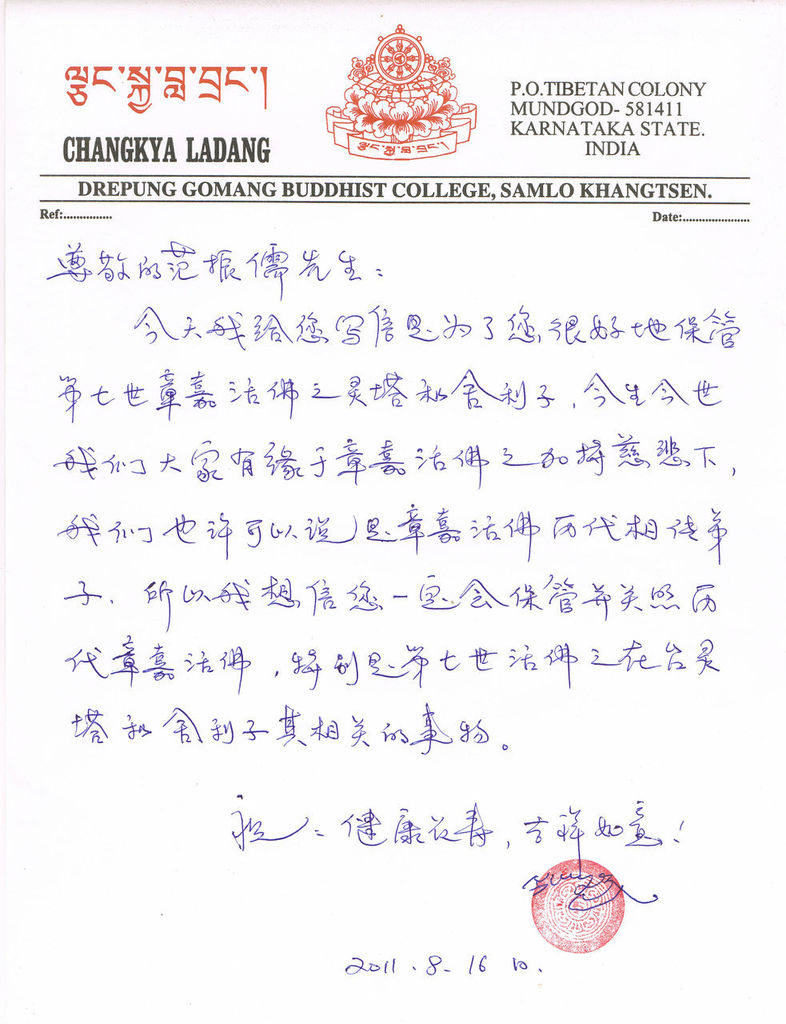 ལྕང་སྐྱ་བླ་བྲང་།
CHANGKYA LADANG
ལྕང་སྐྱ་བླ་བྲང་།
P.O.TIBETAN COLONY
MUNDGOD- 581411
KARNATAKA STATE.
INDIA
DREPUNG GOMANG BUDDHIST COLLEGE, SAMLO KHANGTSEN.
Ref:...............
Date:......................
尊敬的范振儒先生：
今天我给您写信是为了您很好地保管
第七世章嘉活佛之灵塔和舍利子，今生今世
我们大家有缘于章嘉活佛之加持慈悲下，
我们也许可以说是章嘉活佛历代相传弟
子．所以我想信您一定会保管并关照历
代章嘉活佛，特别是第七世活佛之在台灵
塔和舍利子其相关的事物。
祝：健康长寿，吉祥如意！
2011.8.16日.